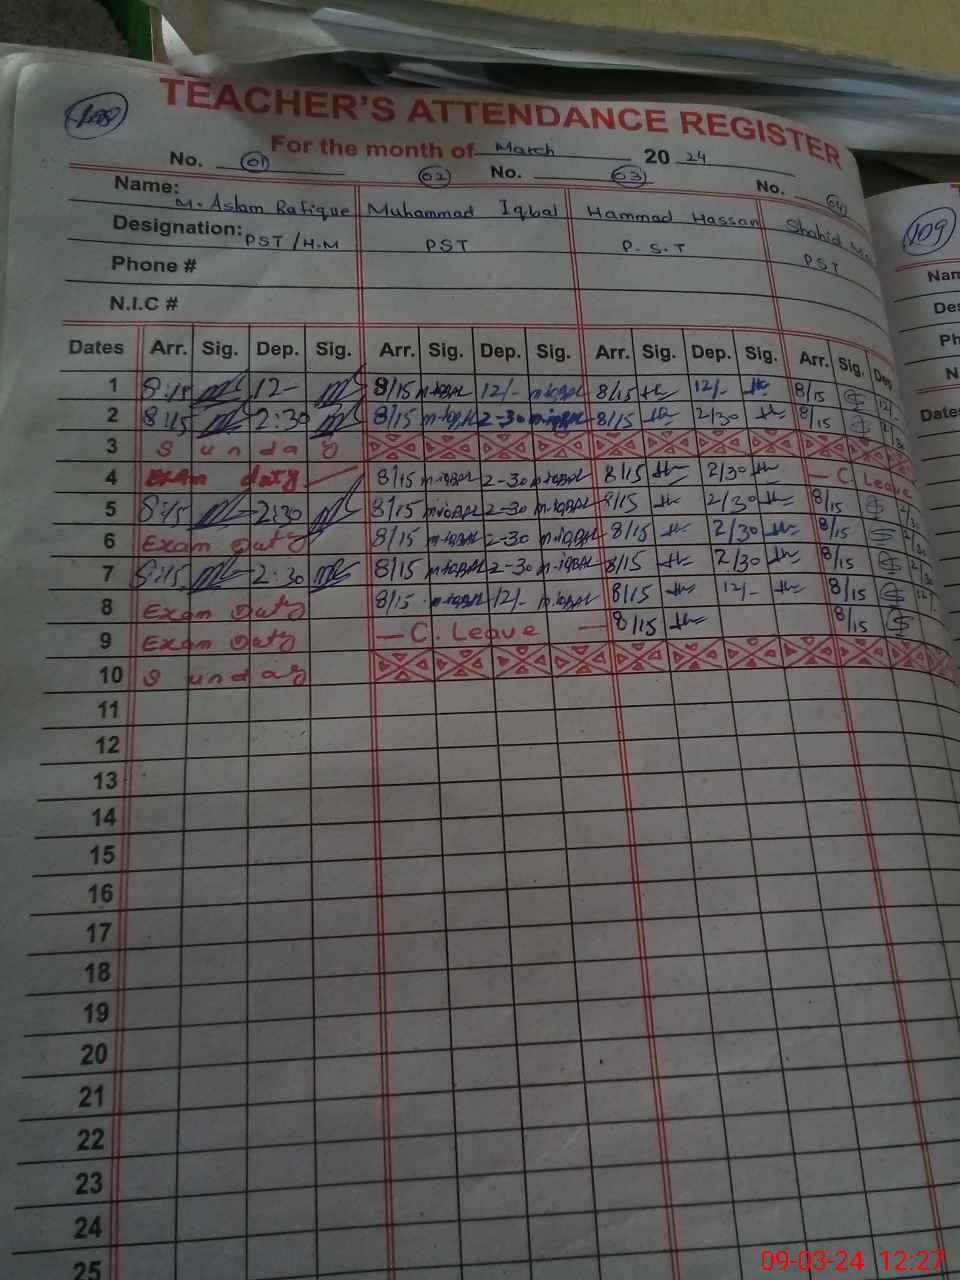 108
TEACHER'S ATTENDANCE REGISTER
For the month of March 2024
No. 61 62 No. 63 No. 64
Name: M. Aslam Rafique Muhammad Iqbal Hammad Hassan Shahid
Designation: PST / H.M PST P.S.T PST
Phone #
N.I.C #
Dates Arr. Sig. Dep. Sig. Arr. Sig. Dep. Sig. Arr. Sig. Dep. Sig. Arr. Sig. Dep.
1 8:15 12- 8/15 m-iqbal 12/- m-iqbal 8/15 12/- 8/15 12/-
2 8:15 2:30 8/15 m-iqbal 2-30 m-iqbal 8/15 2/30 8/15 2/30
3 Sunday
4 Exam duty 8/15 m-iqbal 2-30 m-iqbal 8/15 2/30 — C. Leave
5 8:15 2:30 8/15 m-iqbal 2-30 m-iqbal 8/15 2/30 8/15 2/30
6 Exam Duty 8/15 m-iqbal 2-30 m-iqbal 8/15 2/30 8/15 2/30
7 8:15 2:30 8/15 m-iqbal 2-30 m-iqbal 8/15 2/30 8/15 2/30
8 Exam Duty 8/15 m-iqbal 12/- m-iqbal 8/15 12/- 8/15 12/-
9 Exam Duty — C. Leave — 8/15 8/15
10 Sunday
11
12
13
14
15
16
17
18
19
20
21
22
23
24
25
109
Dates
09-03-24 12:27